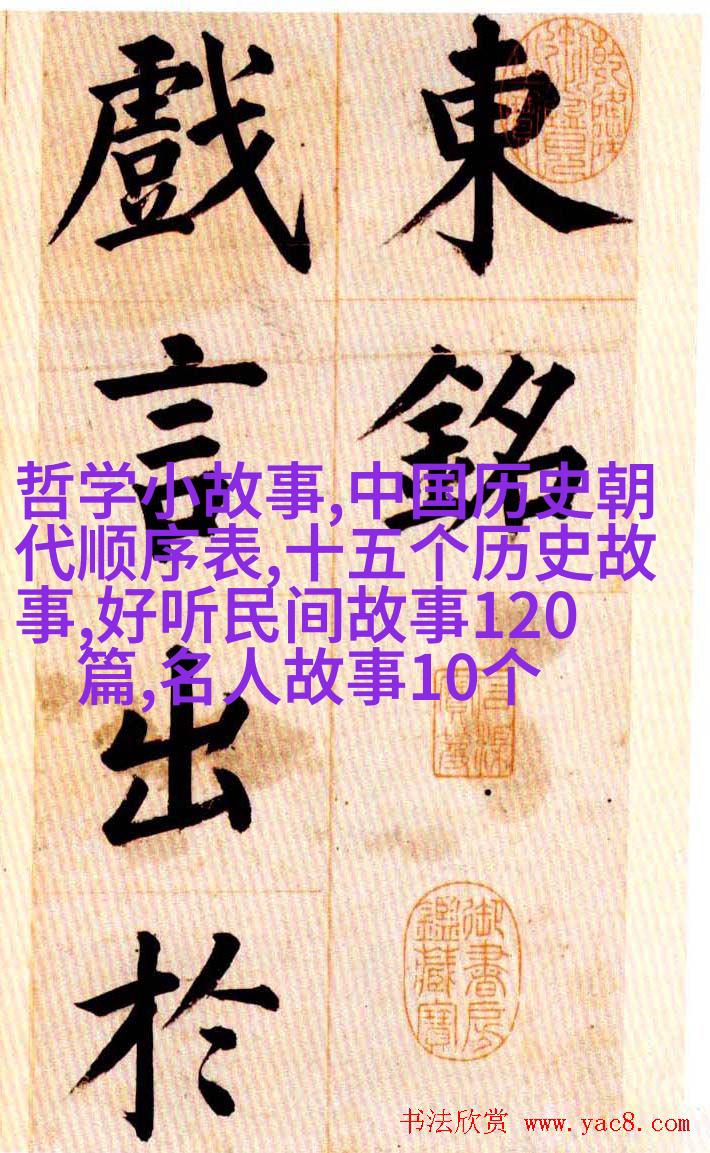 東銘
戲言出於
哲学小故事,中国历史朝
代顺序表,十五个历史故
事,好听民间故事120
篇,名人故事10个
御書房
鑑藏寶
书法欣赏 www.yac8.com